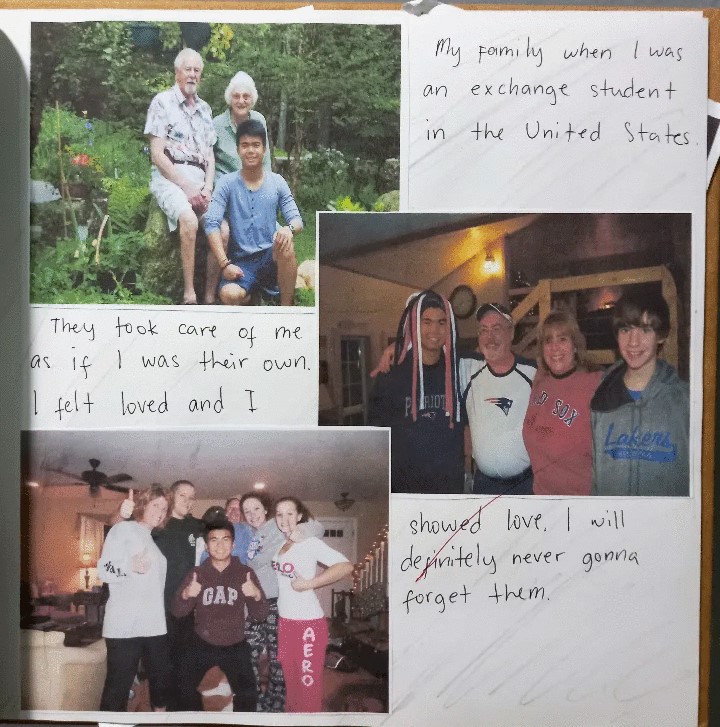 My family when I was
an exchange student
in the United States.
They took care of me
as if I was their own.
I felt loved and I
PATRIOTS
RED SOX
Lakers
showed love. I will
definitely never gonna
forget them.
GAP
AERO